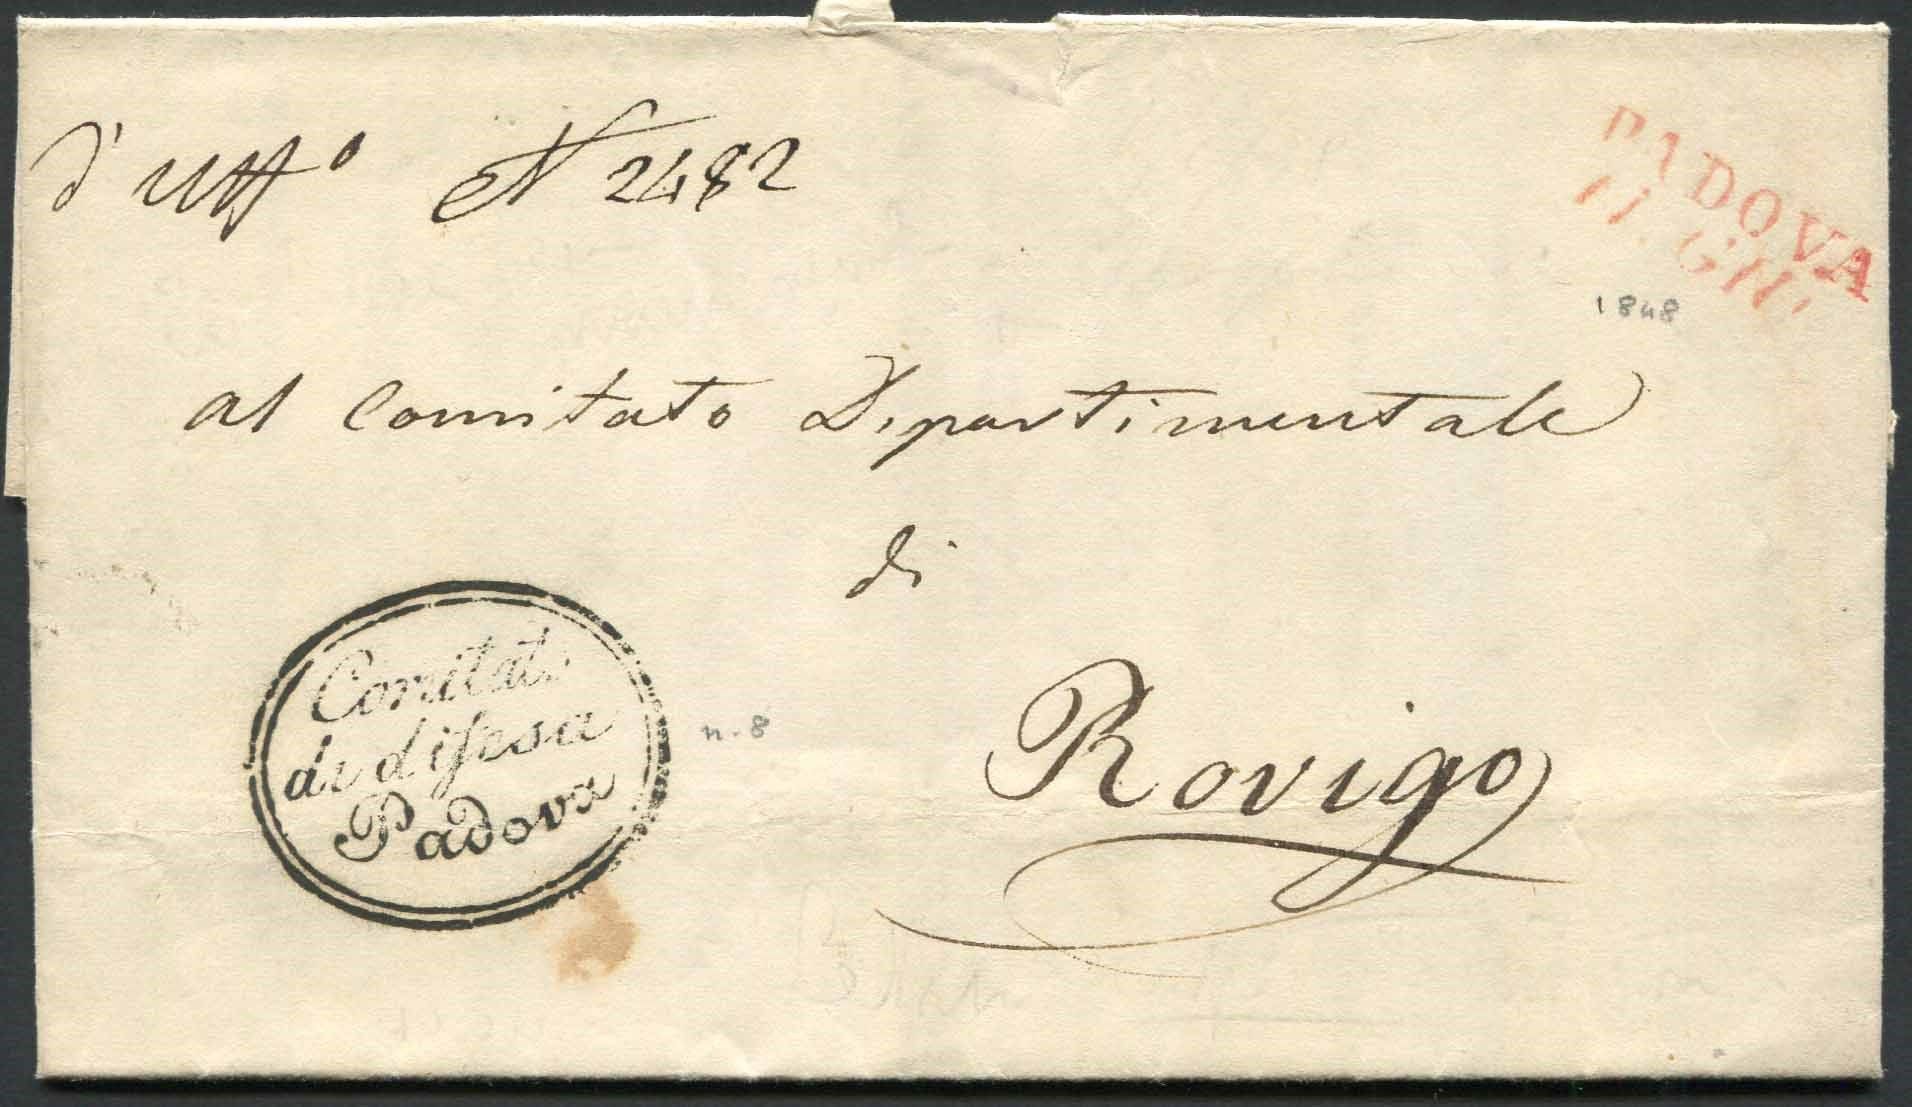 d'uffo N 2482
PADOVA
11. GIU.
1848
al Comitato Dipartimentale
di
Rovigo
Comitato
di difesa
Padova
n. 8